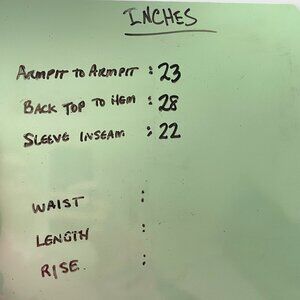 INCHES
ARMPIT TO ARMPIT : 23
BACK TOP TO HEM : 28
SLEEVE INSEAM : 22
WAIST :
LENGTH :
RISE :